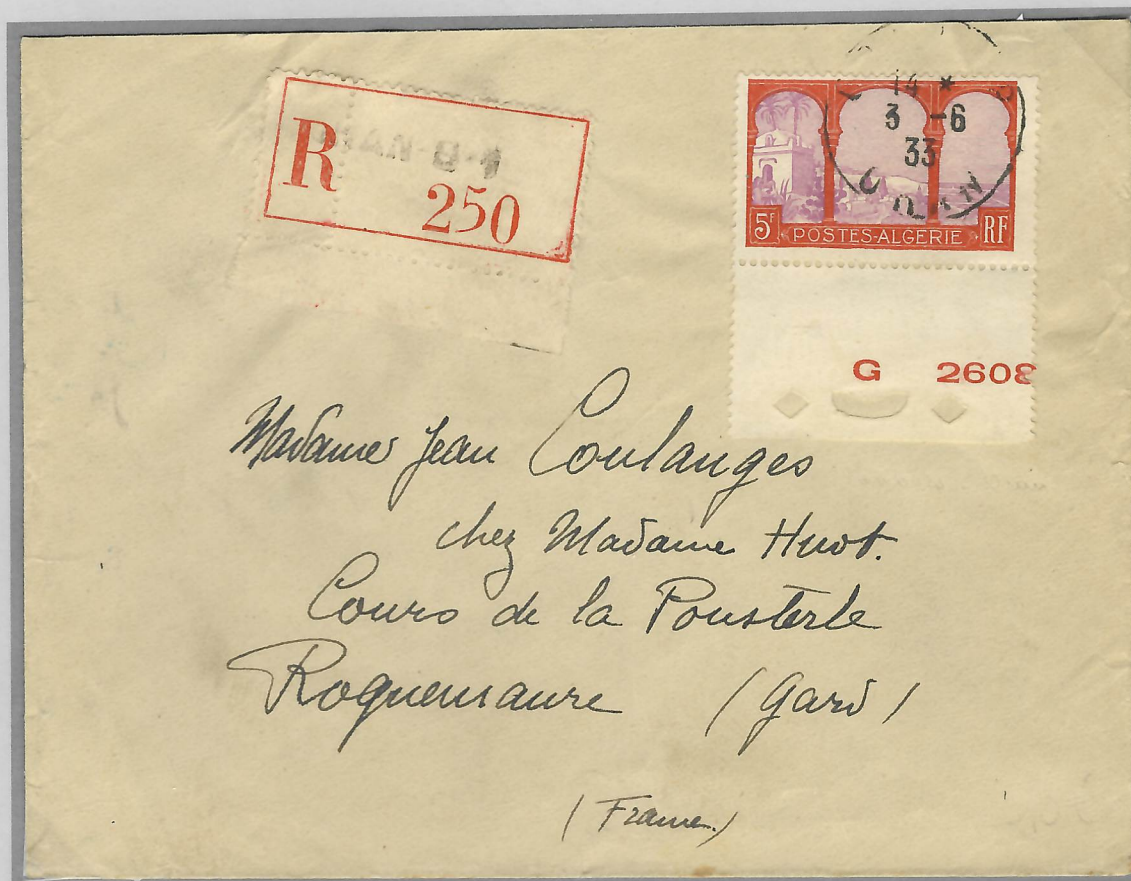 R
250
14 *
3 -6
33
ORAN
5F POSTES-ALGERIE RF
G 2608
Madame Jean Coulanges
chez Madame Huot.
Cours de la Pousterle
Roquemaure (Gard)
(France)